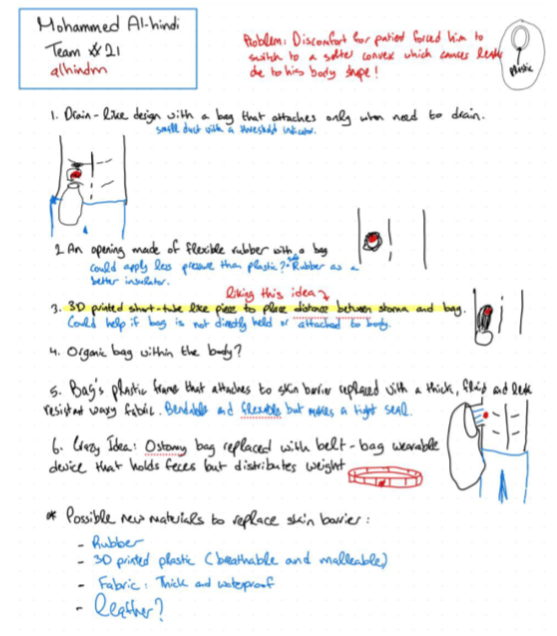 Mohammed Al-hindi
Team #21
alhindm
Problem: Discomfort for patient forced him to
switch to a softer convex which causes leaks
due to his body shape!
Plastic
1. Drain-like design with a bag that attaches only when need to drain.
small duct with a threshold indicator.
2. An opening made of flexible rubber with a bag
could apply less pressure than plastic? Rubber as a
better insulator.
liking this idea
3. 3D printed short-tube like piece to place distance between stoma and bag.
Could help if bag is not directly held or attached to body.
4. Organic bag within the body?
5. Bag's plastic frame that attaches to skin barrier replaced with a thick, fluid and leak
resistant waxy fabric. Bendable and flexible but makes a tight seal.
6. Crazy Idea: Ostomy bag replaced with belt-bag wearable
device that holds feces but distributes weight
* Possible new materials to replace skin barrier:
- Rubber
- 3D printed plastic (breathable and malleable)
- Fabric: Thick and waterproof
- Leather?